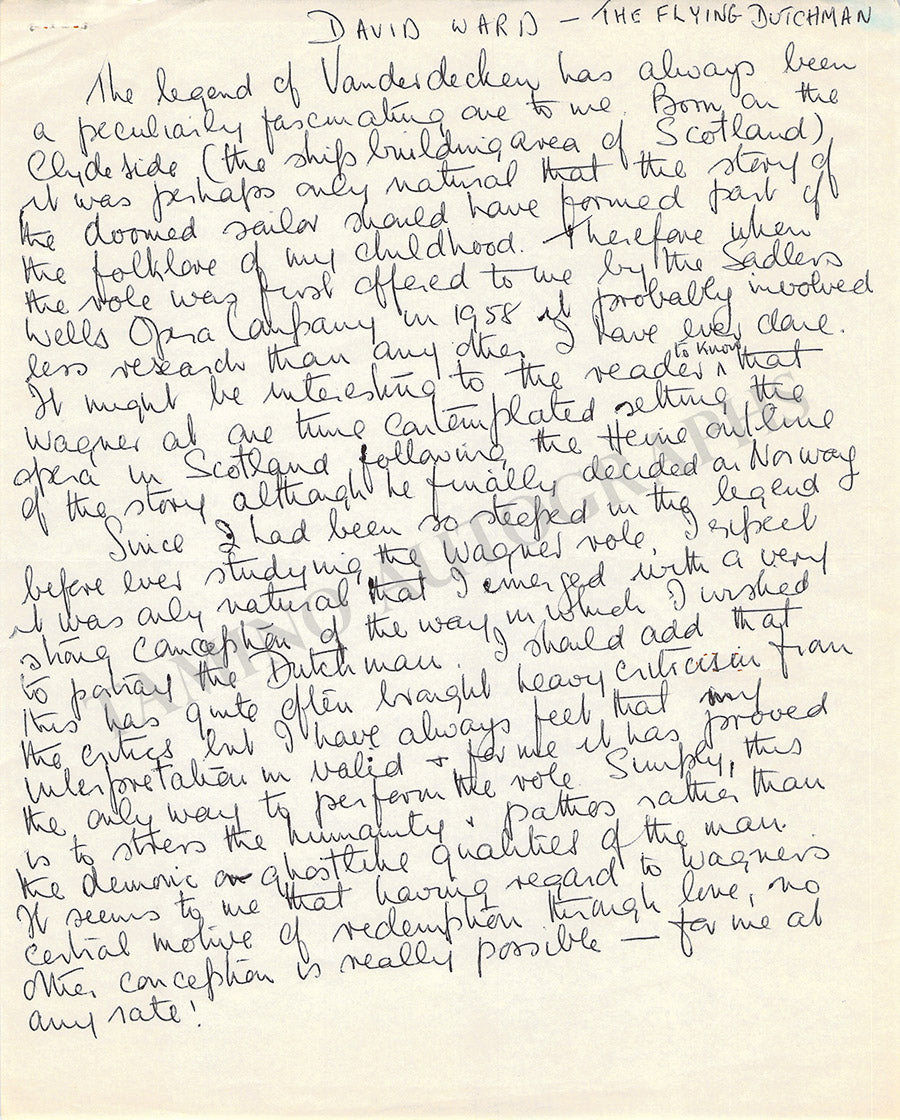 DAVID WARD – THE FLYING DUTCHMAN
The legend of Vanderdecken has always been
a peculiarily fascinating one to me. Born on the
Clydeside (the shipbuilding area of Scotland)
it was perhaps only natural that the story of
the doomed sailor should have formed part of
the folklore of my childhood. Therefore when
the role was first offered to me by the Sadlers
Wells Opera Company in 1958 it probably involved
less research than any other I have ever done.
It might be interesting to the reader to know that
Wagner at one time contemplated setting the
opera in Scotland following the Heine outline
of the story although he finally decided on Norway
Since I had been so steeped in the legend
before ever studying the Wagner role, I expect
it was only natural that I emerged with a very
strong conception of the way in which I wished
to portray the Dutchman. I should add that
this has quite often brought heavy criticism from
the critics but I have always feel that my
interpretation in valid & for me it has proved
the only way to perform the role. Simply, this
is to stress the humanity & pathos rather than
the demonic or ghostlike qualities of the man.
It seems to me that having regard to Wagners
central motive of redemption through love, no
other conception is really possible — for me at
any rate!
TAMINO AUTOGRAPHS